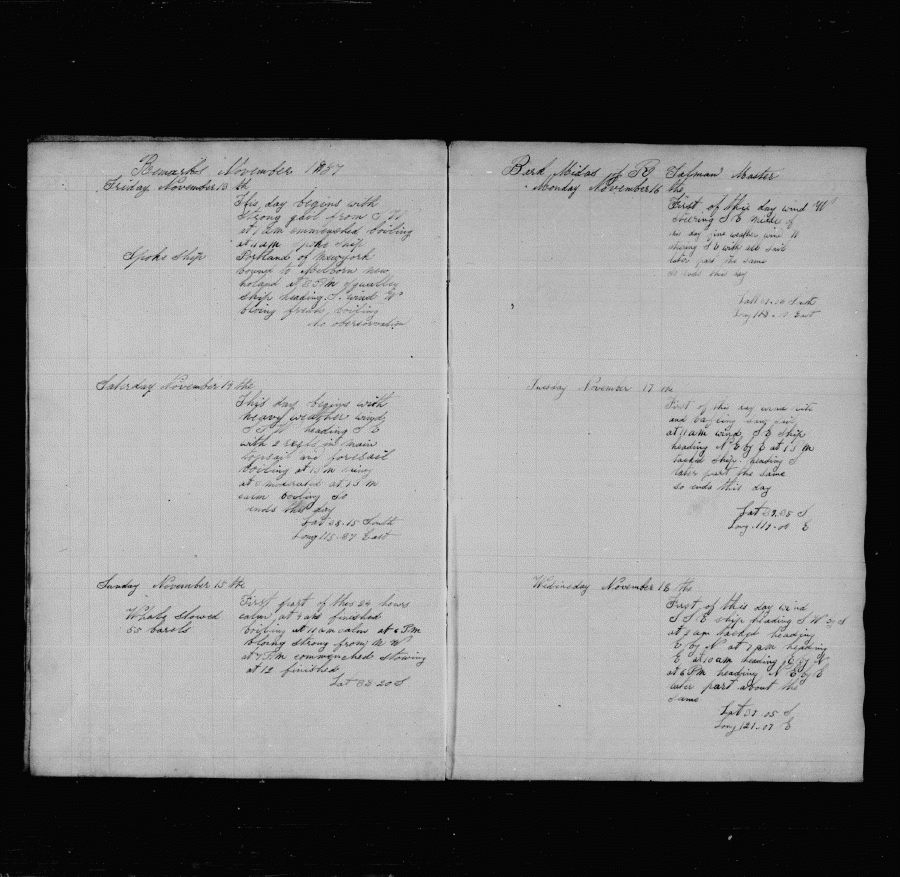 Remarks November 1857
Friday November 13 th
This day begins with
strong gail from S W
at 1 am commenshed boiling
at 11 am spoke ship
Spoke Ship
Portland of Newyork
bound to Melborn new
holand at 8 P.M squalley
ship heading S. wind W
bloing fresh, boiling
No observation
Saterday November 14 the
This day begins with
heavy weather wind
S S W heading S E
with 2 reefs in main
topsail and foresail
boiling at
at moderated at
calm boiling so
ends this day
Lat 38-15 South
Long 115-37 East
Sunday November 15 the
First part of this 24 hours
Whale Stowed
55 barels
calm, at 7 am finished
boiling at 11 am calm at 6 P.M
bloing strong from N W
at 7 P.M commenshed stowing
at 12 finished
Lat 38 20 S
Berk Midas of Talman Master
Monday November 16 the
First of this day wind W
steering S E midle of
this day fine weather, wind W
stering S E with all sail
later part the same
so ends this day
Lat South
Long East
Tuesday November 17 the
First of this day wind
and
at 11 am wind S E ship
heading N E by E at 1 P M
tacked ship heading S
later part the same
so ends this day
Lat 39.35 S
Long 119.00 E
Wednesday November 18 the
First of this day wind
S S E ship heading S W by S
at 5 am tacked heading
E by N at 7 am heading
E at 10 am heading E by N
at 6 PM heading N E by E
later part about the
same
Lat 39.05 S
Long 121-07 E